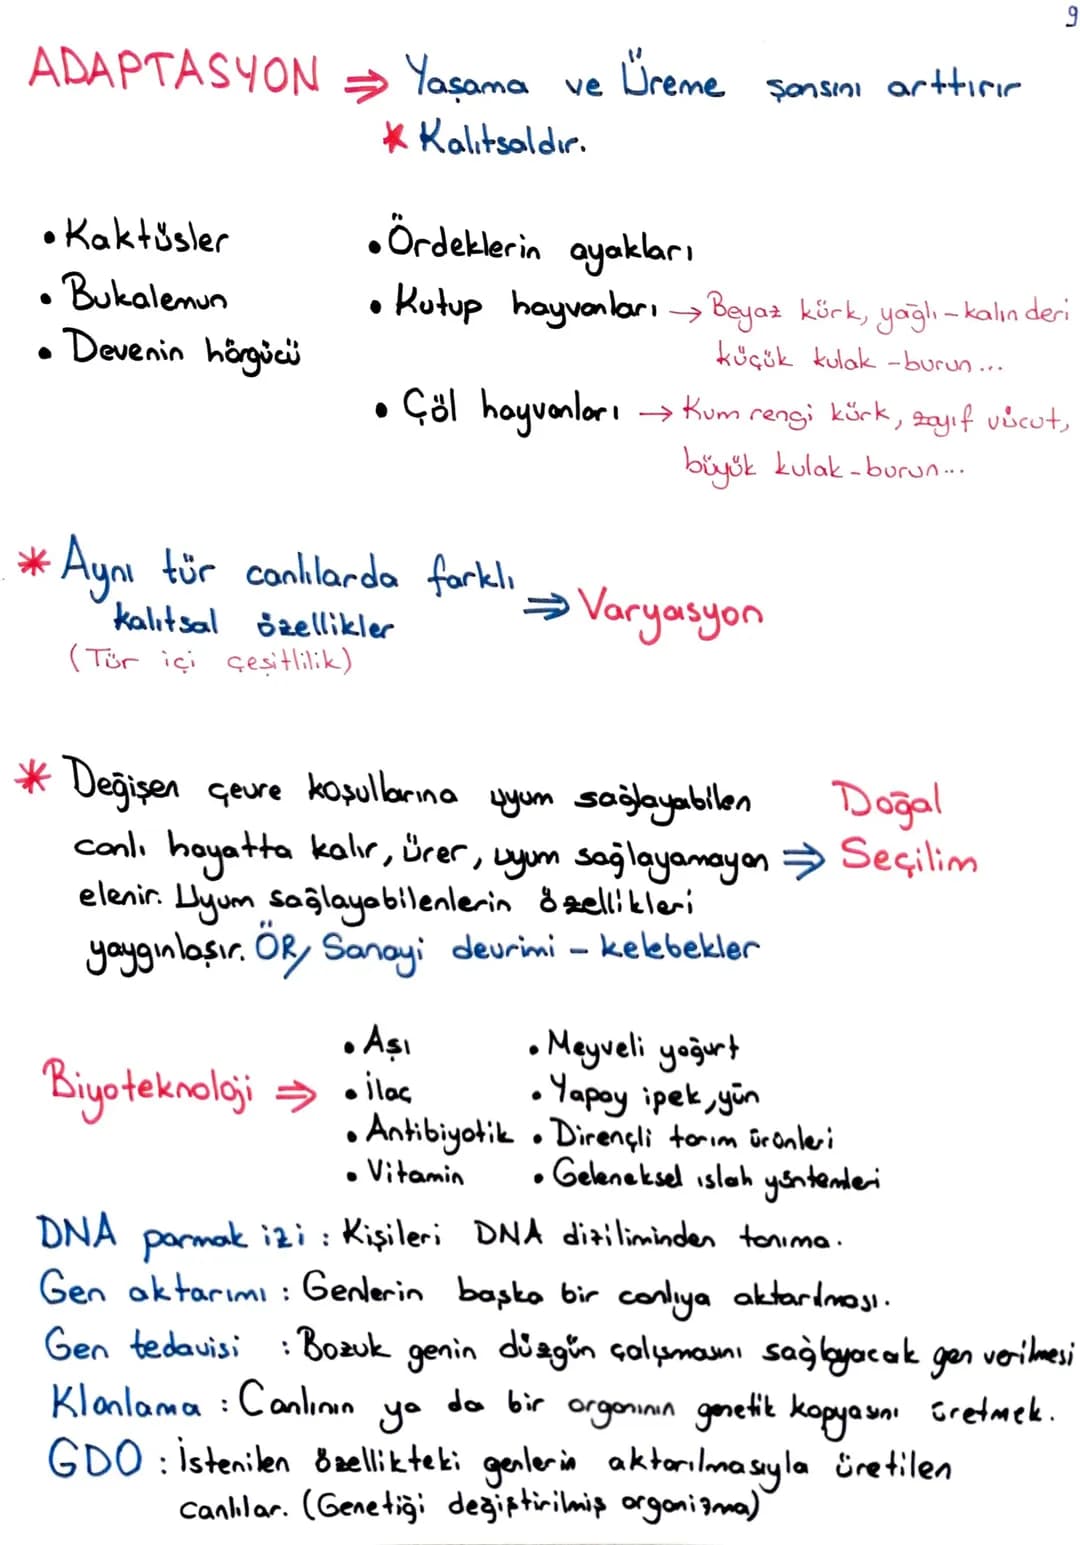 9
ADAPTASYON ⇒ Yaşama ve Üreme şansını arttırır
* Kalıtsaldır.
• Kaktüsler
• Bukalemun
• Devenin hörgücü
• Ördeklerin ayakları
• Kutup hayvanları → Beyaz kürk, yağlı-kalın deri
küçük kulak-burun...
• Çöl hayvanları → Kum rengi kürk, zayıf vücut,
büyük kulak-burun...
* Aynı tür canlılarda farklı
kalıtsal özellikler ⇒ Varyasyon
(Tür içi çeşitlilik)
* Değişen çevre koşullarına uyum sağlayabilen
canlı hayatta kalır, ürer, uyum sağlayamayan ⇒ Doğal Seçilim
elenir. Uyum sağlayabilenlerin özellikleri
yaygınlaşır. ÖR/ Sanayi devrimi - kelebekler
Biyoteknoloji ⇒
• Aşı
• İlaç
• Antibiyotik
• Vitamin
• Meyveli yoğurt
• Yapay ipek, yün
• Dirençli tarım ürünleri
• Geleneksel ıslah yöntemleri
DNA parmak izi : Kişileri DNA diziliminden tanıma.
Gen aktarımı : Genlerin başka bir canlıya aktarılması.
Gen tedavisi : Bozuk genin düzgün çalışmasını sağlayacak gen verilmesi
Klonlama : Canlının ya da bir organının genetik kopyasını üretmek.
GDO : İstenilen özellikteki genlerin aktarılmasıyla üretilen
canlılar. (Genetiği değiştirilmiş organizma)